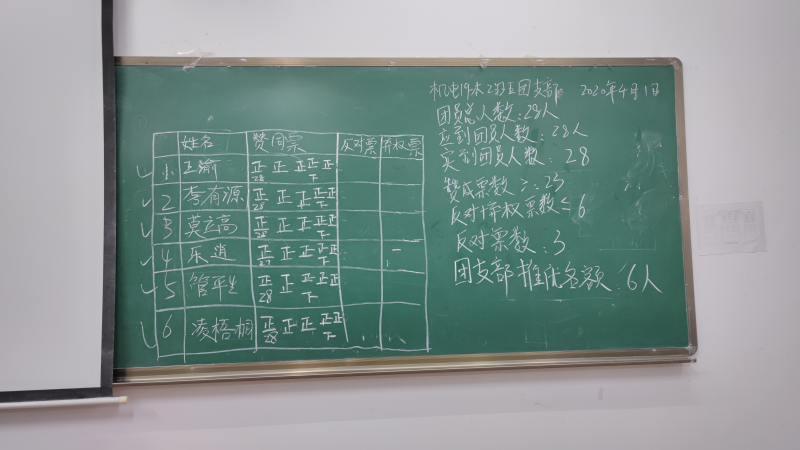 姓名 赞同票 反对票 弃权票
1 王瑜 正 正 正正正下 28
2 李有源 正 正 正正正下 28
3 莫立高 正 正 正正正下 28
4 乐逍 正 正 正正正下 27 一
5 管平生 正 正 正正正下 28
6 凌梧桐 正 正 正 正正下 28
团支部 2020年4月1日
团员总人数:28人
应到团员人数:28人
实到团员人数:28
赞成票数≥:25
反对+弃权票数≤6
反对票数:3
团支部推优名额:6人